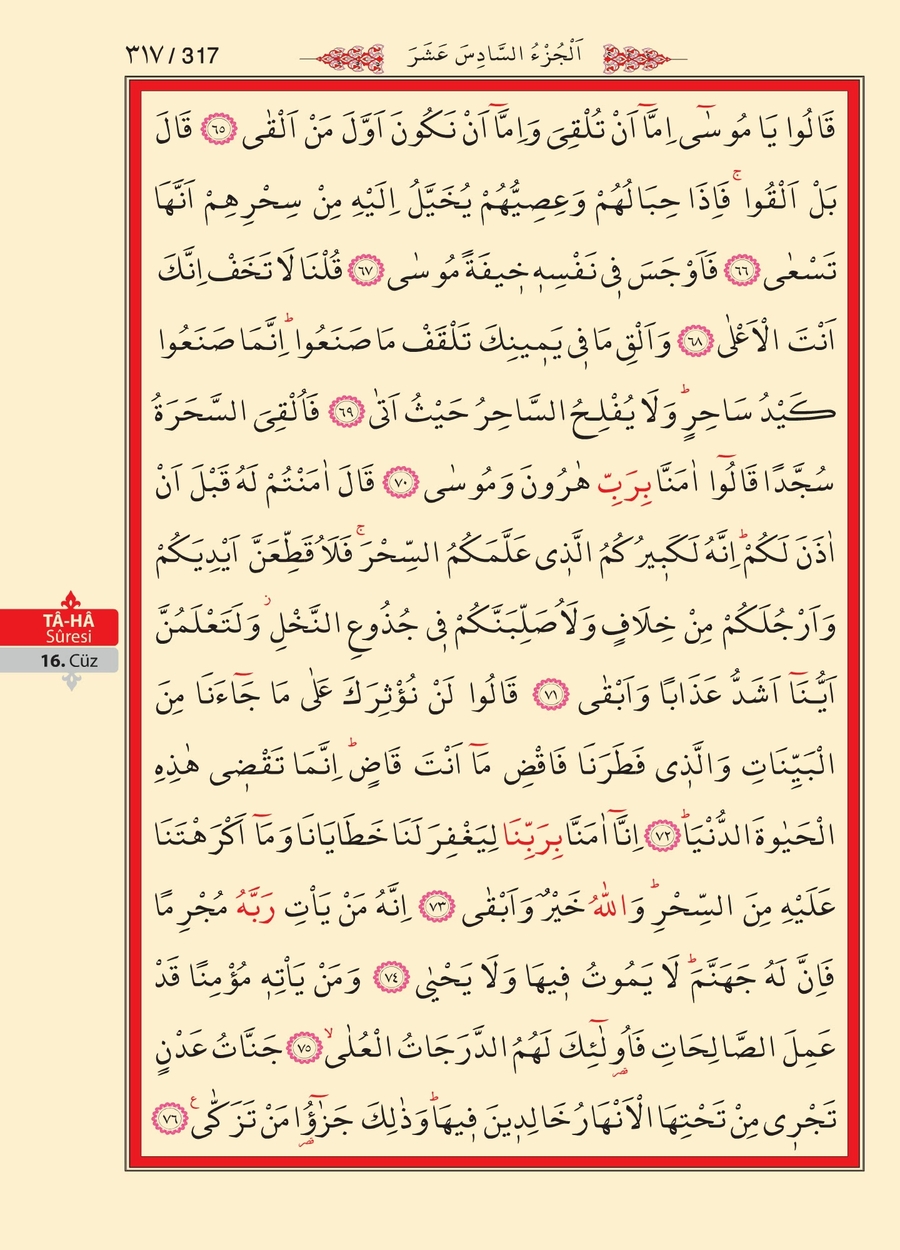 ٣١٧ / 317
اَلْجُزْءُ السَّادِسَ عَشَرَ
قَالُوا يَا مُوسٰٓى اِمَّٓا اَنْ تُلْقِيَ وَاِمَّٓا اَنْ نَكُونَ اَوَّلَ مَنْ اَلْقٰى ﴿٦٥﴾ قَالَ
بَلْ اَلْقُواۚ فَاِذَا حِبَالُهُمْ وَعِصِيُّهُمْ يُخَيَّلُ اِلَيْهِ مِنْ سِحْرِهِمْ اَنَّهَا
تَسْعٰى ﴿٦٦﴾ فَاَوْجَسَ ف۪ي نَفْسِه۪ خ۪يفَةً مُوسٰى ﴿٦٧﴾ قُلْنَا لَا تَخَفْ اِنَّكَ
اَنْتَ الْاَعْلٰى ﴿٦٨﴾ وَاَلْقِ مَا ف۪ي يَم۪ينِكَ تَلْقَفْ مَا صَنَعُواۜ اِنَّمَا صَنَعُوا
كَيْدُ سَاحِرٍۜ وَلَا يُفْلِحُ السَّاحِرُ حَيْثُ اَتٰى ﴿٦٩﴾ فَاُلْقِيَ السَّحَرَةُ
سُجَّدًا قَالُٓوا اٰمَنَّا بِرَبِّ هٰرُونَ وَمُوسٰى ﴿٧٠﴾ قَالَ اٰمَنْتُمْ لَهُ قَبْلَ اَنْ
اٰذَنَ لَكُمْۜ اِنَّهُ لَكَب۪يرُكُمُ الَّذ۪ي عَلَّمَكُمُ السِّحْرَۚ فَلَاُقَطِّعَنَّ اَيْدِيَكُمْ
وَاَرْجُلَكُمْ مِنْ خِلَافٍ وَلَاُصَلِّبَنَّكُمْ ف۪ي جُذُوعِ النَّخْلِۘ وَلَتَعْلَمُنَّ
اَيُّنَٓا اَشَدُّ عَذَابًا وَاَبْقٰى ﴿٧١﴾ قَالُوا لَنْ نُؤْثِرَكَ عَلٰى مَا جَٓاءَنَا مِنَ
الْبَيِّنَاتِ وَالَّذ۪ي فَطَرَنَا فَاقْضِ مَٓا اَنْتَ قَاضٍۜ اِنَّمَا تَقْض۪ي هٰذِهِ
الْحَيٰوةَ الدُّنْيَاۜ ﴿٧٢﴾ اِنَّٓا اٰمَنَّا بِرَبِّنَا لِيَغْفِرَ لَنَا خَطَايَانَا وَمَٓا اَكْرَهْتَنَا
عَلَيْهِ مِنَ السِّحْرِۜ وَاللّٰهُ خَيْرٌ وَاَبْقٰى ﴿٧٣﴾ اِنَّهُ مَنْ يَأْتِ رَبَّهُ مُجْرِمًا
فَاِنَّ لَهُ جَهَنَّمَۜ لَا يَمُوتُ ف۪يهَا وَلَا يَحْيٰى ﴿٧٤﴾ وَمَنْ يَأْتِه۪ مُؤْمِنًا قَدْ
عَمِلَ الصَّالِحَاتِ فَاُو۬لٰٓئِكَ لَهُمُ الدَّرَجَاتُ الْعُلٰىۙ ﴿٧٥﴾ جَنَّاتُ عَدْنٍ
تَجْر۪ي مِنْ تَحْتِهَا الْاَنْهَارُ خَالِد۪ينَ ف۪يهَاۜ وَذٰلِكَ جَزٰٓؤُ۬ا مَنْ تَزَكّٰىع ﴿٧٦﴾
TÂ-HÂ
Sûresi
16. Cüz